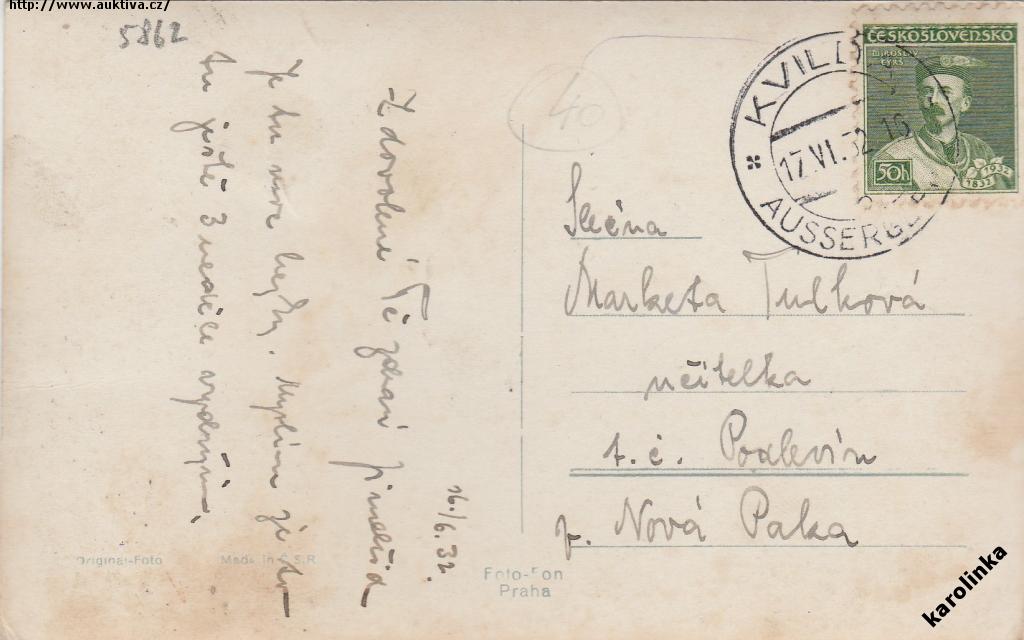 http://www.auktiva.cz/
5862
40
ČESKOSLOVENSKO
MIROSLAV
TYRŠ
50h
1832
1932
KVILD
17.VI.32
AUSSERG
Slečna
Marketa Tulková
učitelka
t. č. Podlevín
p. Nová Paka
16./6. 32.
Z dovolené Tě zdraví
Je tu moc hezky. Myslím že to
tu ještě 3 neděle vydržím.
Original-Foto
Made in Č.S.R.
Foto-Fon
Praha
karolinka